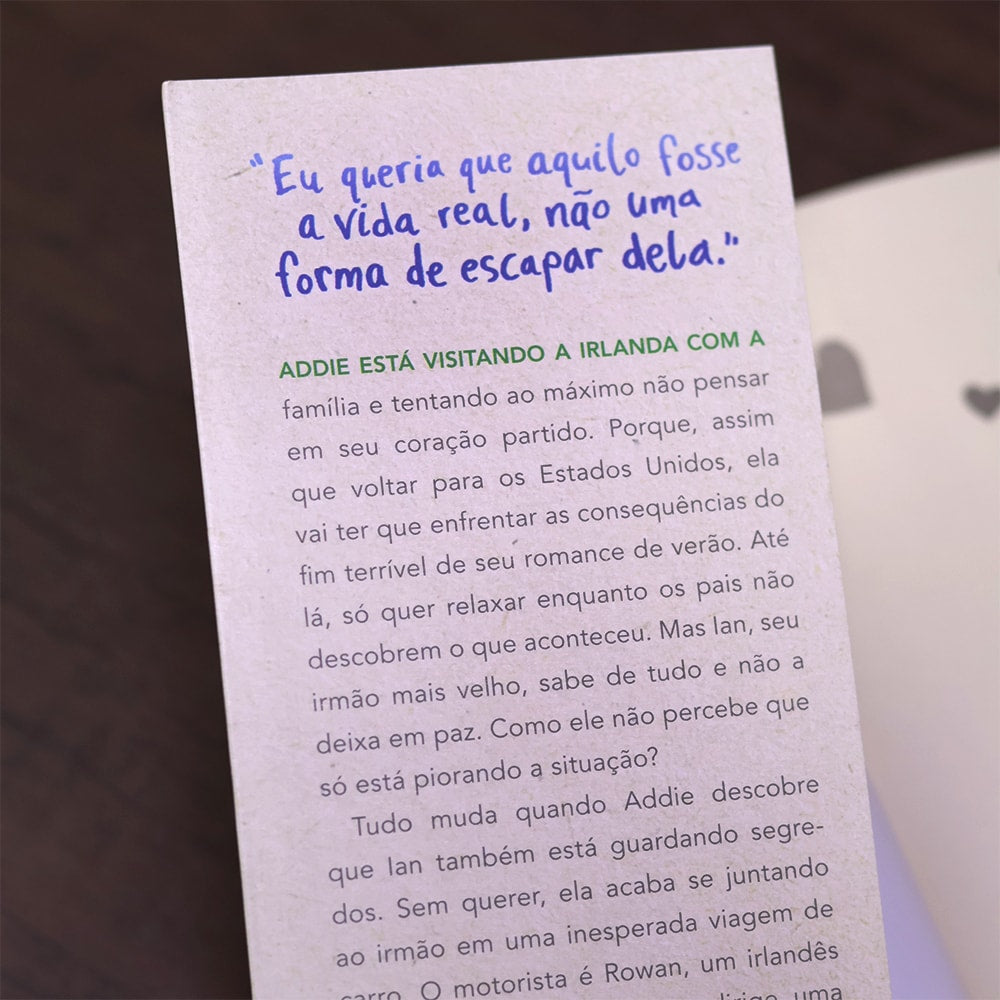 "Eu queria que aquilo fosse
a vida real, não uma
forma de escapar dela."
ADDIE ESTÁ VISITANDO A IRLANDA COM A
família e tentando ao máximo não pensar
em seu coração partido. Porque, assim
que voltar para os Estados Unidos, ela
vai ter que enfrentar as consequências do
fim terrível de seu romance de verão. Até
lá, só quer relaxar enquanto os pais não
descobrem o que aconteceu. Mas Ian, seu
irmão mais velho, sabe de tudo e não a
deixa em paz. Como ele não percebe que
só está piorando a situação?
Tudo muda quando Addie descobre
que Ian também está guardando segre-
dos. Sem querer, ela acaba se juntando
ao irmão em uma inesperada viagem de
carro. O motorista é Rowan, um irlandês
dirige uma